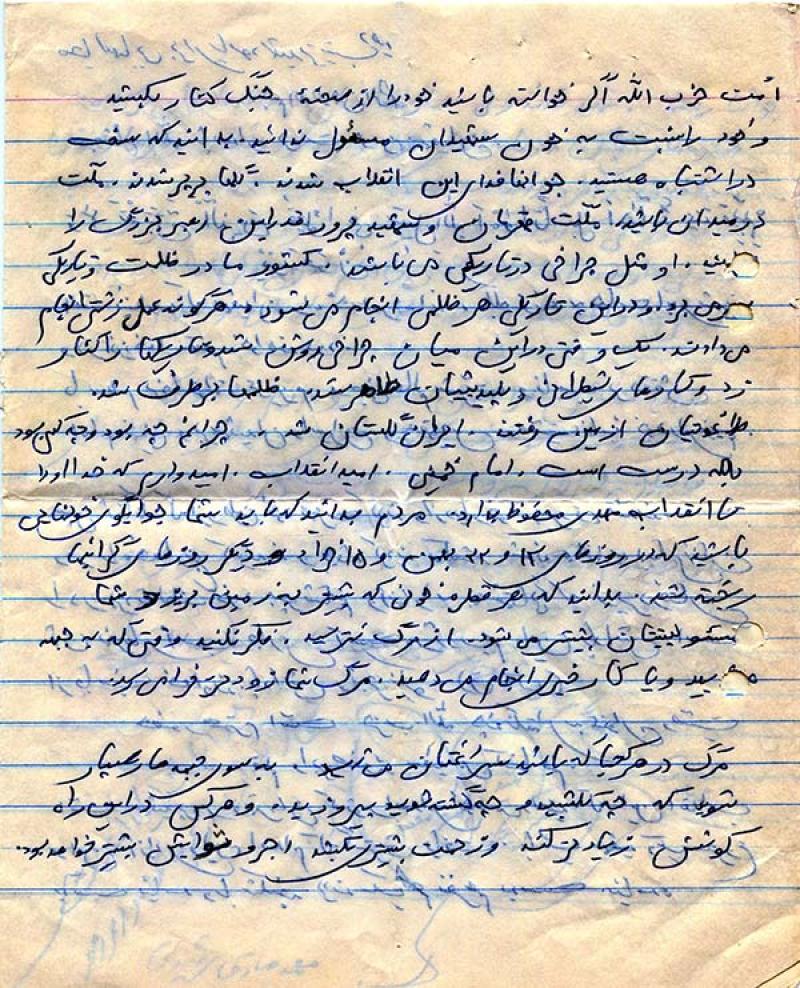 امت حزب الله اگر خواسته باشید خود را از صحنهٔ جنگ کنار بکشید
و خود را نسبت به خون شهیدان مسئول ندانید. بدانید که سخت
در اشتباه هستید. جوانها فدای این انقلاب شدند. گلها پرپر شدند. ملت
در میدان باشید. ملت قهرمان و شهید پرور قدر این رهبر بزرگ را
او مثل چراغی در تاریکی می باشد. کشور ما در ظلمت و تاریکی
بود و در این تاریکی هر ظلمی انجام می شود و هرگونه عمل زشتی انجام
می دادند. یک وقتی در این میان چراغی روشن شد و تاریکیها را کنار
زد و کارهای شیطان و پلیدیشان ظاهر شد. ظلمها برطرف شد.
طاغوتیان از بین رفتند. ایران گلستان شد. چراغ چه بود و چه کسی بود
بله درست است. امام خمینی. امید انقلاب. امیدوارم که خدا او را
تا انقلاب مهدی محفوظ بدارد. مردم بدانید که باید شما جوابگوی خونهایی
باشید که در روزهای ۱۷ و ۲۲ بهمن و ۱۵ خرداد و دیگر روزهای گرانبها
ریخته شد. بدانید که هر قطره خونی که بیشتر به زمین بریزد شما
مسئولیتتان بیشتر می شود. از مرگ نترسید. فکر نکنید وقتی که به جبهه
و یا کار خیری انجام می دهید. مرگ شما زودتر فرا می رسد.
مرگ در هر کجا که باشید به سراغتان می آید به سوی جبهه ها رهسپار
شوید که چه بکشید و چه کشته شوید پیروزید. و هرکس در این راه
کوشش زیادتر کند و زحمت بیشتری بکشد اجر و ثوابش بیشتر خواهد بود.